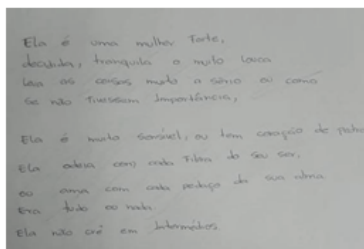 Ela é uma mulher forte,
decidida, tranquila e muito louca
Leva as coisas muito a sério ou como
se não tivessem importância,
Ela é muito sensível, ou tem coração de pedra
Ela odeia com cada fibra do seu ser,
ou ama com cada pedaço da sua alma.
Era tudo ou nada
Ela não crê em intermédios.